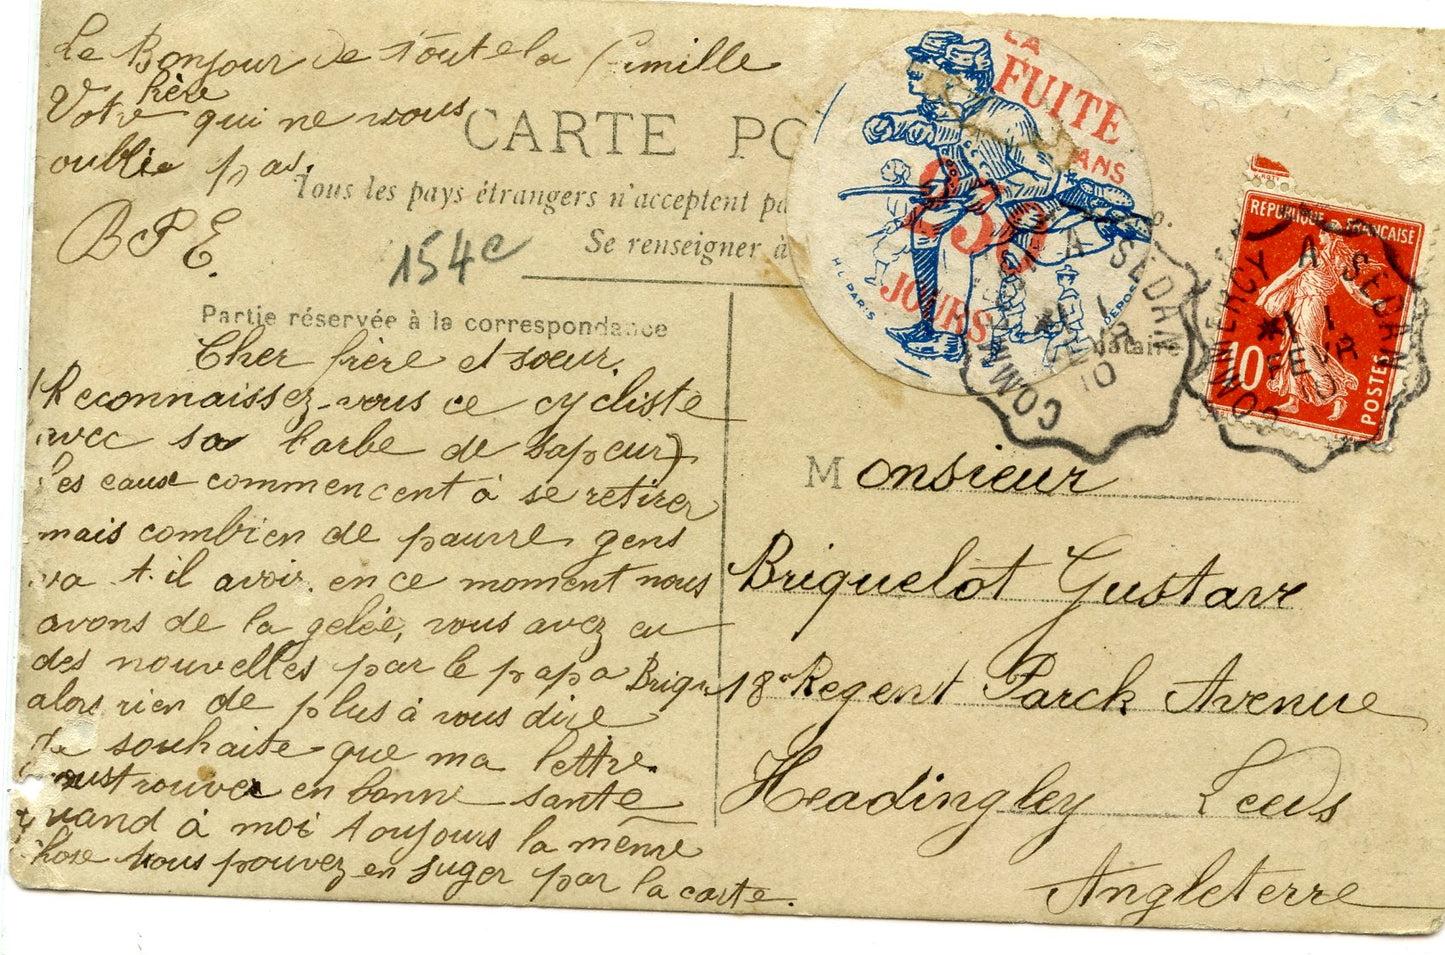 Le Bonjour de toute la famille
Votre frère qui ne vous
oublie pas.
B P E.
CARTE PO
Tous les pays étrangers n'acceptent pa
Se renseigner à
154e
LA
FUITE
DANS
238
JOURS
H.L. PARIS
DEPOSE
COMMERCY A SEDAN
*1 1
FEVR
10
COMMERCY A SEDAN
*1 1
FEVR
10
REPUBLIQUE FRANÇAISE
10
POSTES
Partie réservée à la correspondance
nataire
Cher frère et sœur.
(Reconnaissez-vous ce cycliste
avec sa barbe de sapeur)
les eaux commencent à se retirer
mais combien de pauvre gens
va t-il avoir en ce moment nous
avons de la gelée, vous avez eu
des nouvelles par le papa Briqu
alors rien de plus à vous dire
Je souhaite que ma lettre
vous trouve en bonne santé
quand à moi toujours la même
chose vous pouvez en juger par la carte.
Monsieur
Briquelot Gustave
18 Regent Parck Avenue
Headingley Leeds
Angleterre